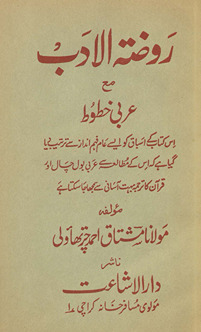 روضتہ الادب
مع
عربی خطوط
اِس کتاب کے اسباق کو ایسے عام فہم انداز سے ترتیب دیا
گیا ہے کہ اِس کے مطالعہ سے عربی بول چال اور
قرآن کا ترجمہ بہت آسانی سے سمجھا جا سکتا ہے
مؤلفہ
مولانا مشتاق احمد چرتھاولی
ناشر
دار الاشاعت
مولوی مسافر خانہ کراچی ۱